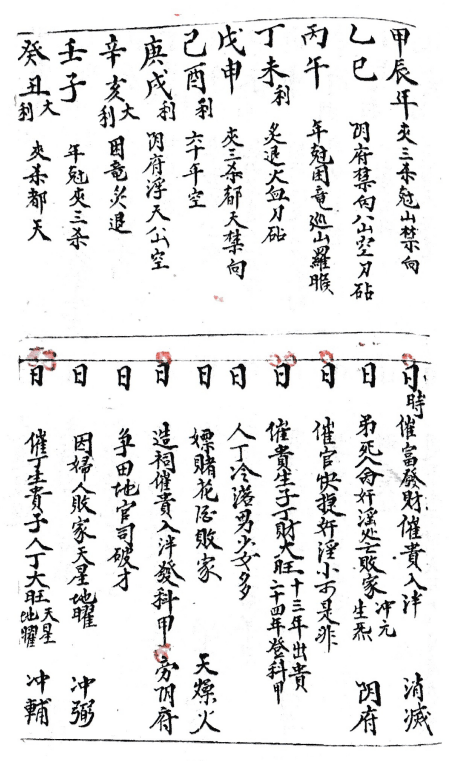 甲辰年 夾三杀尅山禁向
乙巳 阴府禁向八山空刀砧
丙午 年尅困竜巡山羅睺
丁未利 炙退火血刀砧
戊申 夾三杀都天禁向
己酉利 六十年空
庚戌利 阴府浮天八山空
辛亥大利 困竜炙退
壬子 年尅夾三杀
癸丑大利 夾杀都天
日時 催富發財催貴入泮 消滅
日 弔死人命奸淫處亡敗家 冲元生炁 阴府
日 催官快捷奸淫小可是非
日 催貴生子丁財大旺 十三年出貴二十四年登科甲
日 人丁冷落男少女多
日 嫖賭花酒敗家 天燥火
日 造祠催貴入泮發科甲 旁阴府
日 争田地官司破才
日 因婦人敗家天星地曜 冲弼
日 催丁生貴子人丁大旺天星地曜 冲輔